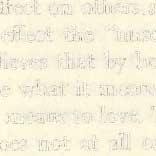 irect on others, s
eflect the "husb
lieves that by he
e what it means
means to love. T
oes not at all c